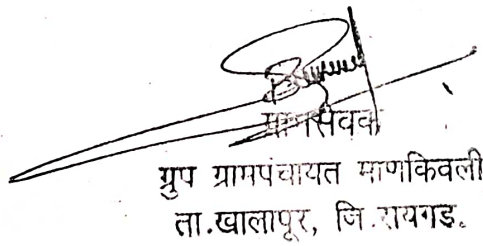 ग्रामसेवक
ग्रुप ग्रामपंचायत माणकिवली
ता.खालापूर, जि.रायगड.